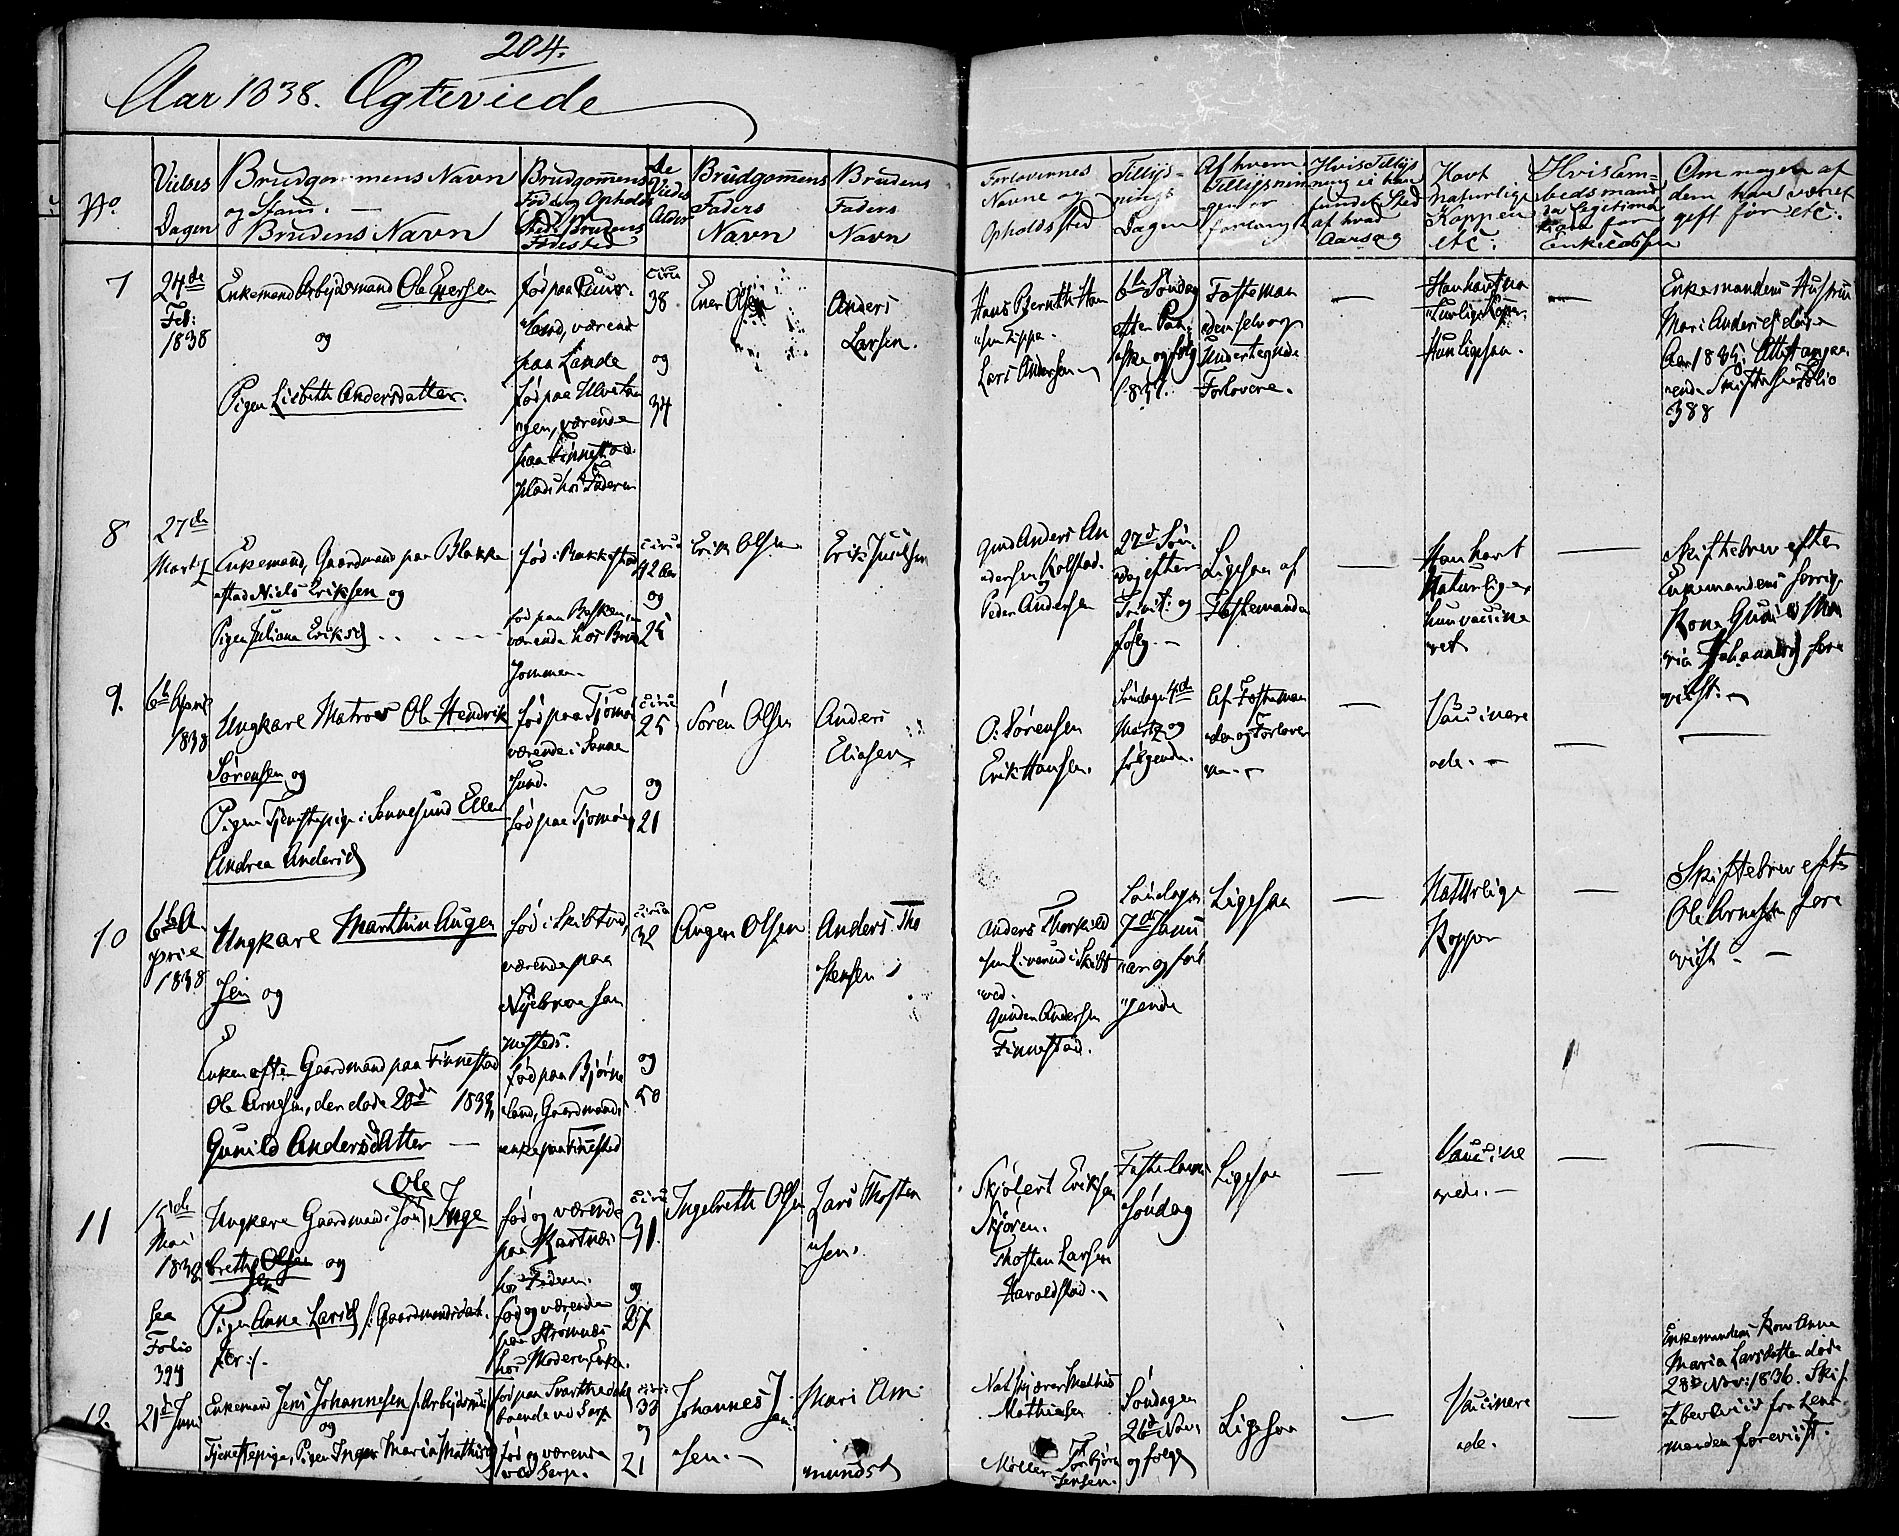 204.
Aar 1838. Ægteviede
No.
Vielses
Dagen
Brudgommens Navn
og Stand. —
Brudens Navn
Brudgommens
Fød og Opholds
Sted Brudens
Fødested
De
Viedes
Alder
Brudgommens
Faders
Navn
Brudens
Faders
Navn
Forlovernes
Navne og
Opholdssted
Tillys-
nings
Dagen
Af hvem
Tillysnin
gen er
forlangt
Hvis Tillys
ning ei har
fundet Sted
af hvad
Aarsag
Havt
naturlige
Kopper
etc.
Om nogen af
dem har været
gift før etc.
7
24de
Feb:
1838
Enkemand Arbeidsmand Ole Eversen
og
Pigen Lisbeth Andersdatter.
værende
paa Lande
værende
paa Finnestad
Plads hos Faderen
circa
38
og
34
Ener Olsen
Anders
Larsen.
Hans Bernth Han
sen
Lars Andersen
6te Søndag
efter Paa
ske og følg
1837.
Fæsteman
den selv og
Undertegnede
Forlovere.
—
Han havt na
turlige Kopper
Hun ligesaa.
—
Enkemandens Hustrue
Mari Andersd. døde
Folio
388
8
27de
Martz
Enkemand, Gaardmand paa Blakke
stad Niels Eriksen og
Pigen Juliane Eriksd
fød i Rakkestad
værende hos Brud
gommen.
circa
42 Aar
og
25
Erik Olsen
Gmd Anders An
dersen Kolstad
og
Peder Andersen
27d Søn-
dag efter
Trinit: og
følg. —
Ligesaa af
Fæstemanden
—
Han havt
Naturlige
hun vaccine
ret
—
Skiftebrev efter
Enkemandens forrige
Kone
fore
viist. —
9.
6te April
1838
Ungkarl Matros Ole Hendrik
Sørensen og
Pigen Tjenestepige i Sannesund Ellen
Andrea Andersd
fød paa Tjømø
værende i Sanne
sund.
fød paa Tjømøe
circa
25
og
21
Søren Olsen
Anders
Eliasen
O. Sørensen
Erik Hansen.
Søndagen 4de
Martz og
følgende.
Af Fæsteman
den og Forlover
ne. —
—
Vaccinere
ede. —
—
—
10
6te A
pril
1838
Ungkarl Marthin Augen
sen og
Enken efter Gaardmand paa Finnestad
Ole Arnesen, der døde 20de 183
Gunild Andersdatter —
fød i Skibtvedt,
værende paa
fød paa Bjørne
land, Gaardmands
enke paa Finnestad
circa
32
og
50
Augen Olsen
Anders Tho
stensen
Anders Thorkild
sen Liverud i Skibt
ved.
Gunder Andersen
Finnestad.
Søndagen
7de Janu
ar og føl
gende
Ligesaa
—
Naturlige
Kopper
—
Skiftebrev efter
Ole Arnesen fore
viist —
11
15de
Mai
1838
see
Folio
394
Ungkarl Gaardmands Søn Ole Inge
breth Olsen
sen og
Pigen Anne Larsd /: Gaardmandsdat
ter :/.
fød og værende
paa Kartnæs
hos Faderen.
fød og værende
paa Strømnæs
hos Moderen Enke.
circa
31.
og
27
Ingebreth Olsen
Lars Thosten
sen.
Skjølert Eriksen
Skjøren.
Thosten Larsen
Haraldstad.
Fastelavns
Søndag
Ligesaa
—
Vaccine
rede. —
—
—
12.
21de Juni
Enkemand Jens Johannesen /: Arbeidsmd
og
Tjenestepige, Pigen Inger Maria Mathisd
fød paa
boende ved Sarp
fød og værende
ved Sarp.
circa
33
og
21
Johannes Jen
sen. —
Mari Am
mundsd
Mathis
Mathisen
Møller Torbjørn
Jensen.
Søndagen
26de Nov.
og følg
Ligesaa
—
Vaccinere
de.
—
Enkemandens Kone Anne
Maria Larsdatter døde
28de Nov: 1836. Skif
tebeviis fra Lens
manden foreviist.